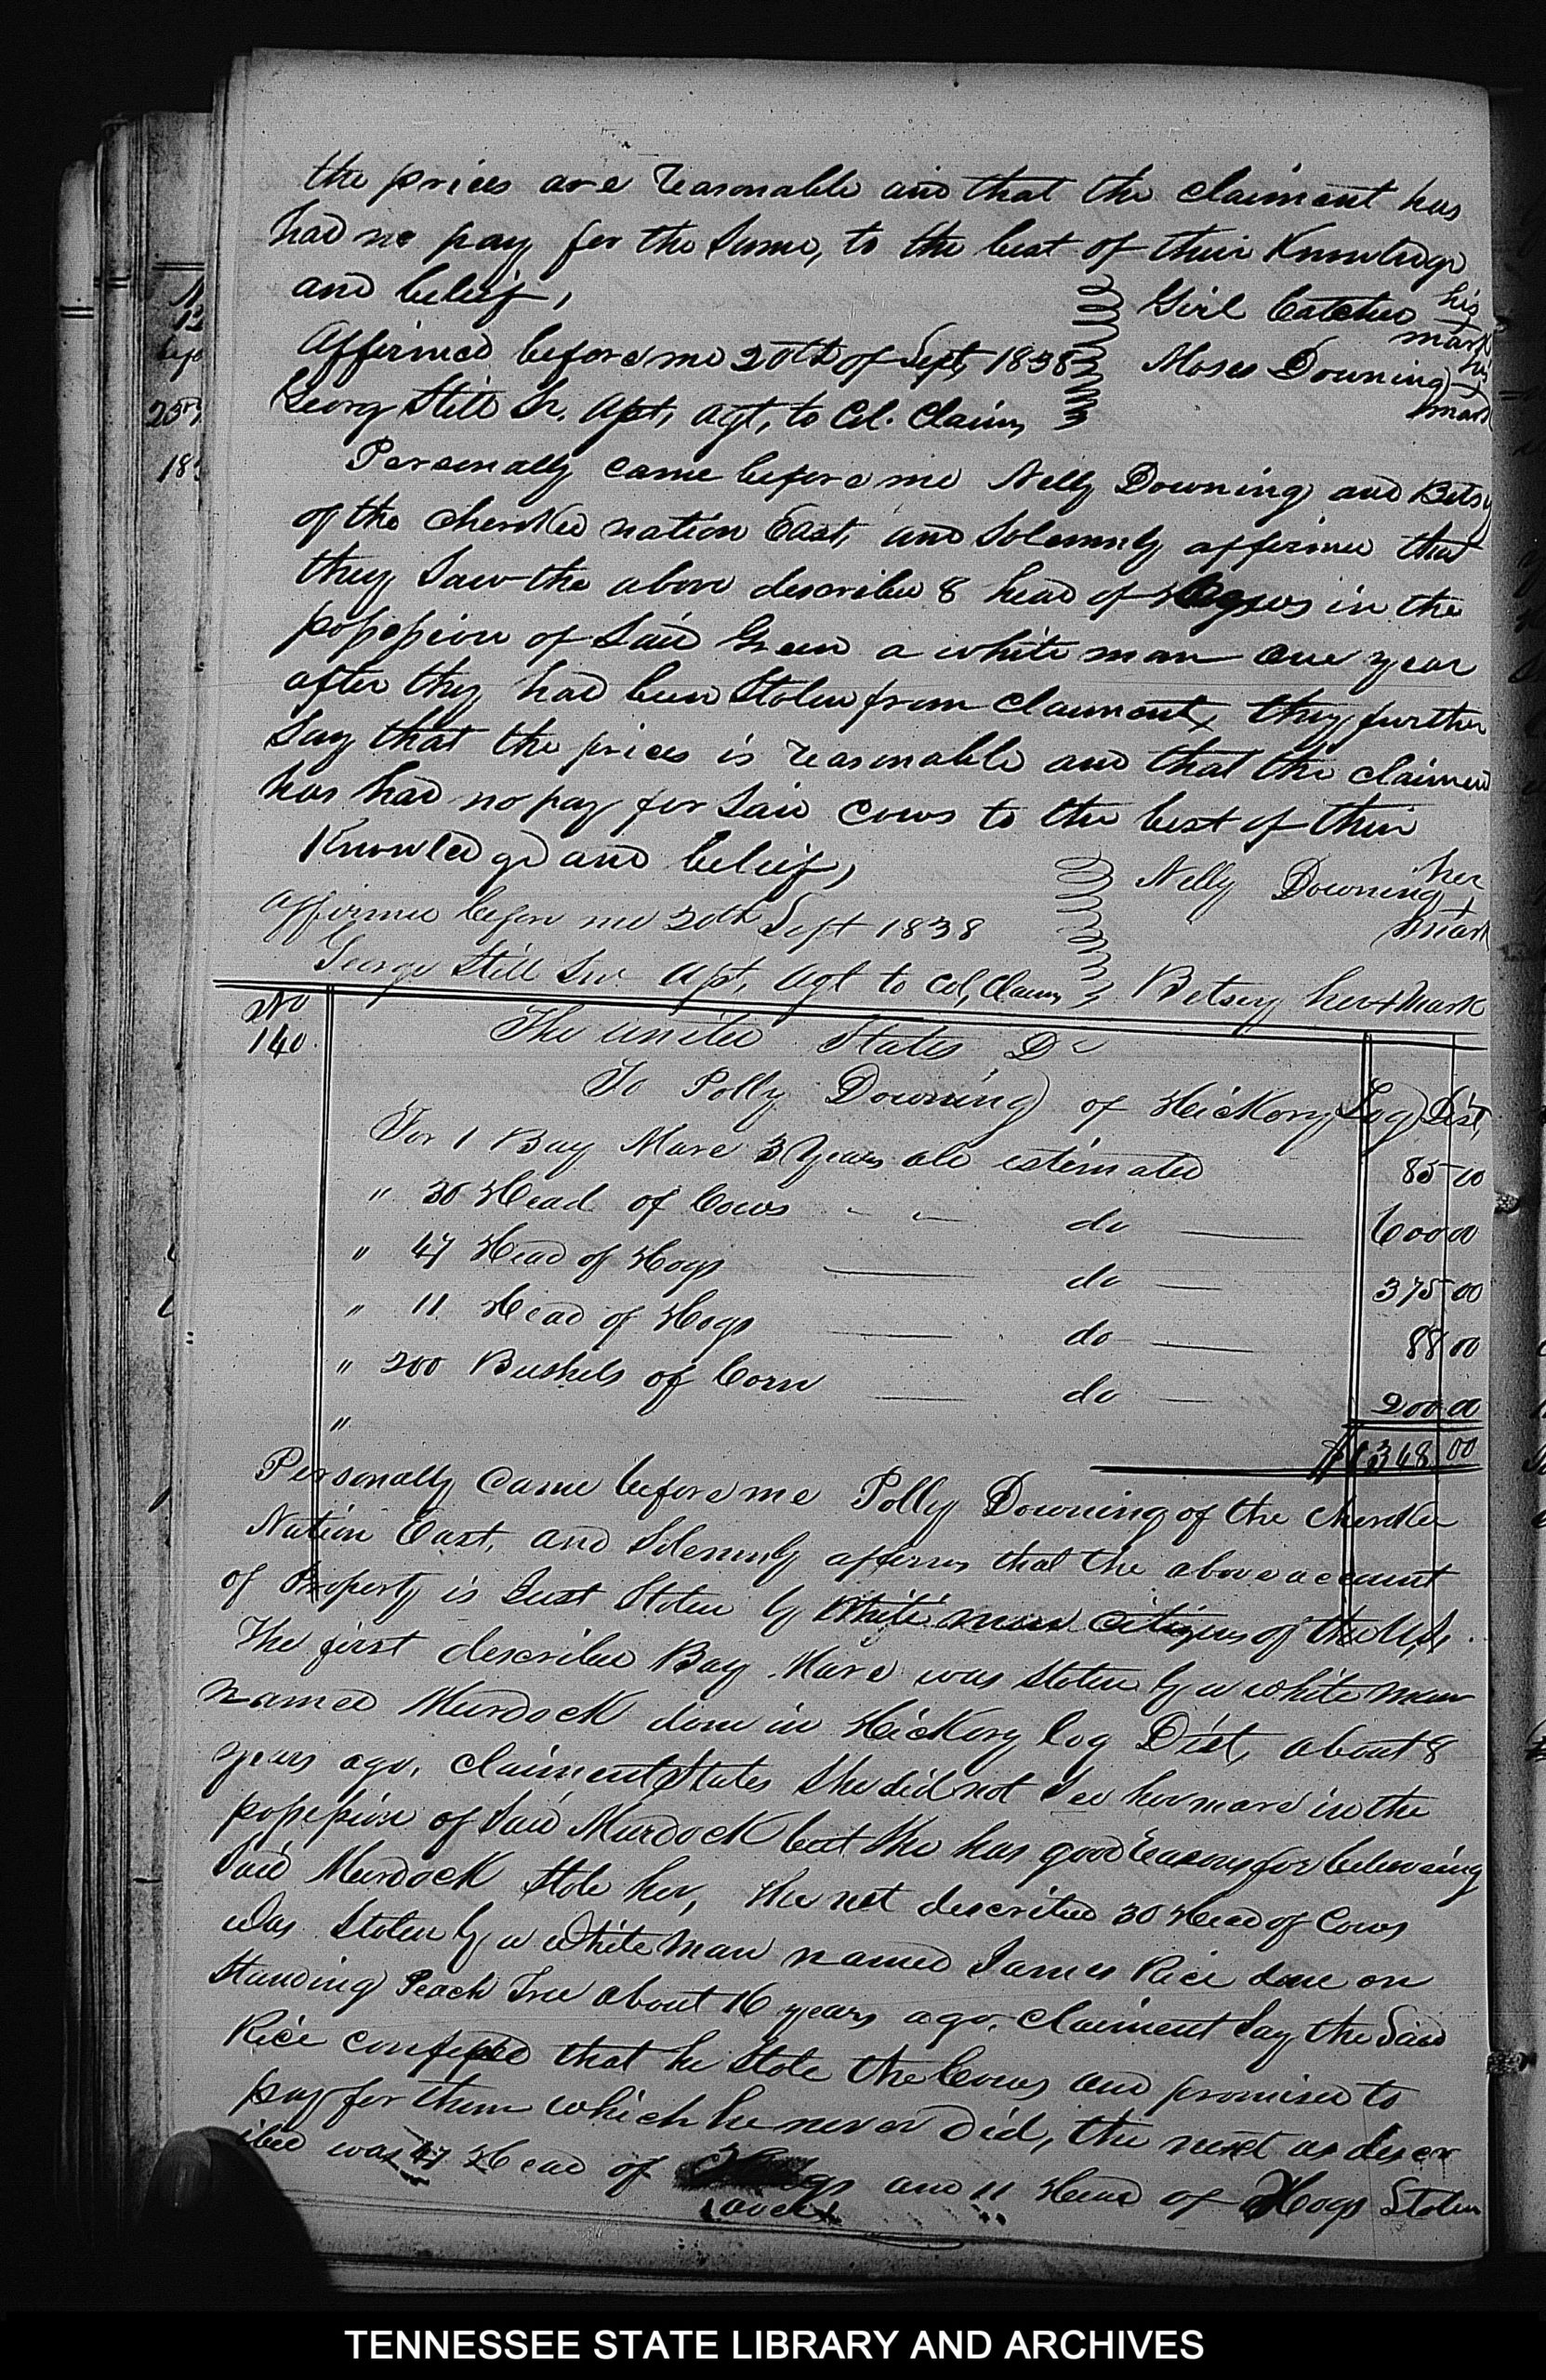 the prices are reasonable and that the claimant has
had no pay for the same, to the best of their Knowledge
and beleif,
Girl Catcher his mark
Affirmed before me 20th of Sept, 1838
Moses Downing his mark
George Still Sr. Apt, agt, to Col. Claims
Personally came before me Nelly Downing and Betsy
of the cherokee nation East, and Solemnly affirmed that
they Saw the above described 8 head of in the
possession of Said Green a white man one year
after they had been Stolen from Claimant, they further
Say that the prices is reasonable and that the claiment
has had no pay for Said Cows to the best of their
Knowledge and beleif,
Nelly Downing her mark
affirmed before me 20th Sept 1838
George Still Snr Apt, Agt to Col, Claims
Betsey her x mark
No
140.
The United States Dr
To Polly Downing of Hickory Log Dist,
For 1 Bay Mare 3 Years old estimated 85 00
" 30 Head of Cows - - do 600 00
" 47 Head of Hogs do 375 00
" 11 Head of Hogs do 88 00
" 200 Bushels of Corn do 200 00
"
$1348 00
Personally Came before me Polly Downing of the Cherokee
Nation East, and Solemnly affirms that the above account
of Property is Just Stolen by White men Citizens of the U.S.
The first described Bay Mare was Stolen by a white man
named Murdock done in Hickory log Dist, about 8
years ago, claiment States She did not See her mare in the
possession of Said Murdock but She has good reasons for beleiveing
Said Murdock Stole her, the next described 30 Head of Cows
was Stolen by a White man named James Rice done on
Standing Peach Tree about 16 years ago, Claiment Say the Said
Rice confessed that he Stole the Cows and promised to
pay for them which he never did, the next as descr
ibed was 47 Head of and 11 Head of Hogs Stolen
TENNESSEE STATE LIBRARY AND ARCHIVES